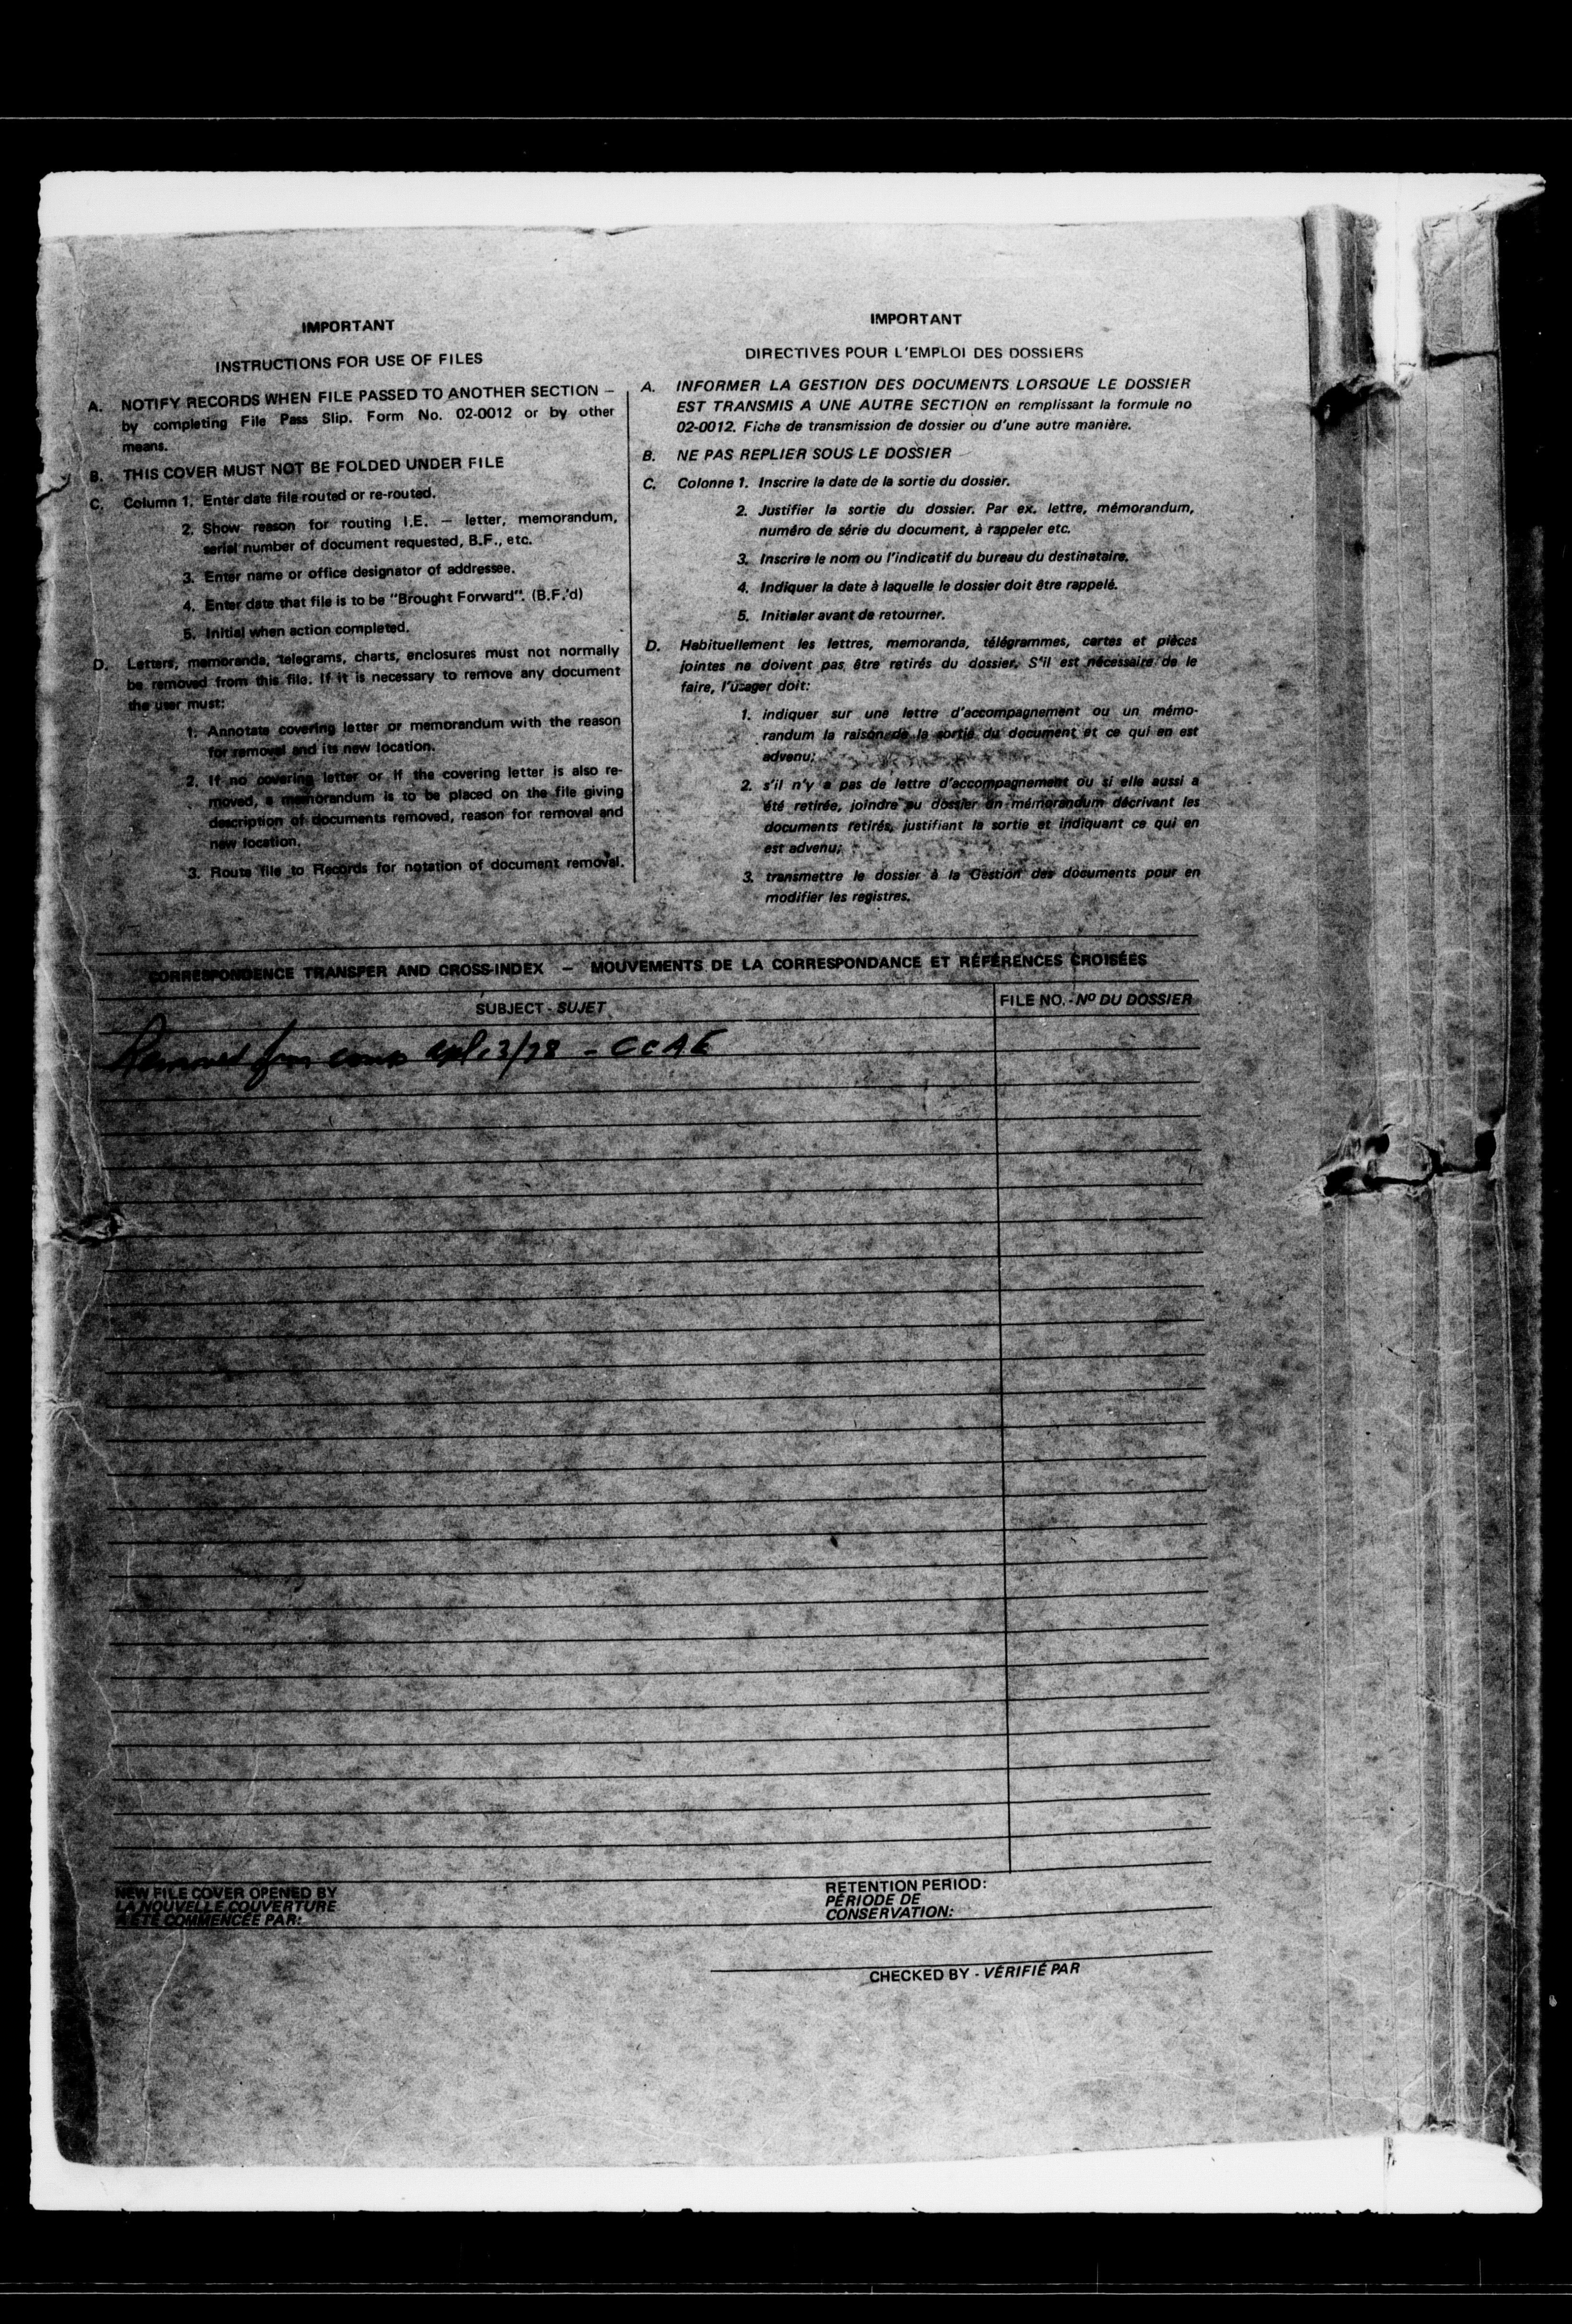 IMPORTANT
INSTRUCTIONS FOR USE OF FILES
A. NOTIFY RECORDS WHEN FILE PASSED TO ANOTHER SECTION –
by completing File Pass Slip. Form No. 02-0012 or by other
means.
B. THIS COVER MUST NOT BE FOLDED UNDER FILE
C. Column 1. Enter date file routed or re-routed.
2. Show reason for routing I.E. – letter, memorandum,
serial number of document requested, B.F., etc.
3. Enter name or office designator of addressee.
4. Enter date that file is to be "Brought Forward". (B.F.'d)
5. Initial when action completed.
D. Letters, memoranda, telegrams, charts, enclosures must not normally
be removed from this file. If it is necessary to remove any document
the user must:
1. Annotate covering letter or memorandum with the reason
for removal and its new location.
2. If no covering letter or if the covering letter is also re-
moved, a memorandum is to be placed on the file giving
description of documents removed, reason for removal and
new location.
3. Route file to Records for notation of document removal.
IMPORTANT
DIRECTIVES POUR L'EMPLOI DES DOSSIERS
A. INFORMER LA GESTION DES DOCUMENTS LORSQUE LE DOSSIER
EST TRANSMIS A UNE AUTRE SECTION en remplissant la formule no
02-0012. Fiche de transmission de dossier ou d'une autre manière.
B. NE PAS REPLIER SOUS LE DOSSIER
C. Colonne 1. Inscrire la date de la sortie du dossier.
2. Justifier la sortie du dossier. Par ex. lettre, mémorandum,
numéro de série du document, à rappeler etc.
3. Inscrire le nom ou l'indicatif du bureau du destinataire.
4. Indiquer la date à laquelle le dossier doit être rappelé.
5. Initialer avant de retourner.
D. Habituellement les lettres, memoranda, télégrammes, cartes et pièces
jointes ne doivent pas être retirés du dossier. S'il est nécessaire de le
faire, l'usager doit:
1. indiquer sur une lettre d'accompagnement ou un mémo-
randum la raison de la sortie du document et ce qui en est
advenu;
2. s'il n'y a pas de lettre d'accompagnement ou si elle aussi a
été retirée, joindre au dossier un mémorandum décrivant les
documents retirés, justifiant la sortie et indiquant ce qui en
est advenu;
3. transmettre le dossier à la Gestion des documents pour en
modifier les registres.
CORRESPONDENCE TRANSFER AND CROSS-INDEX – MOUVEMENTS DE LA CORRESPONDANCE ET RÉFÉRENCES CROISÉES
SUBJECT - SUJET
FILE NO. - Nº DU DOSSIER
Removed
NEW FILE COVER OPENED BY
LA NOUVELLE COUVERTURE
A ÉTÉ COMMENCÉE PAR:
RETENTION PERIOD:
PÉRIODE DE
CONSERVATION:
CHECKED BY - VÉRIFIÉ PAR